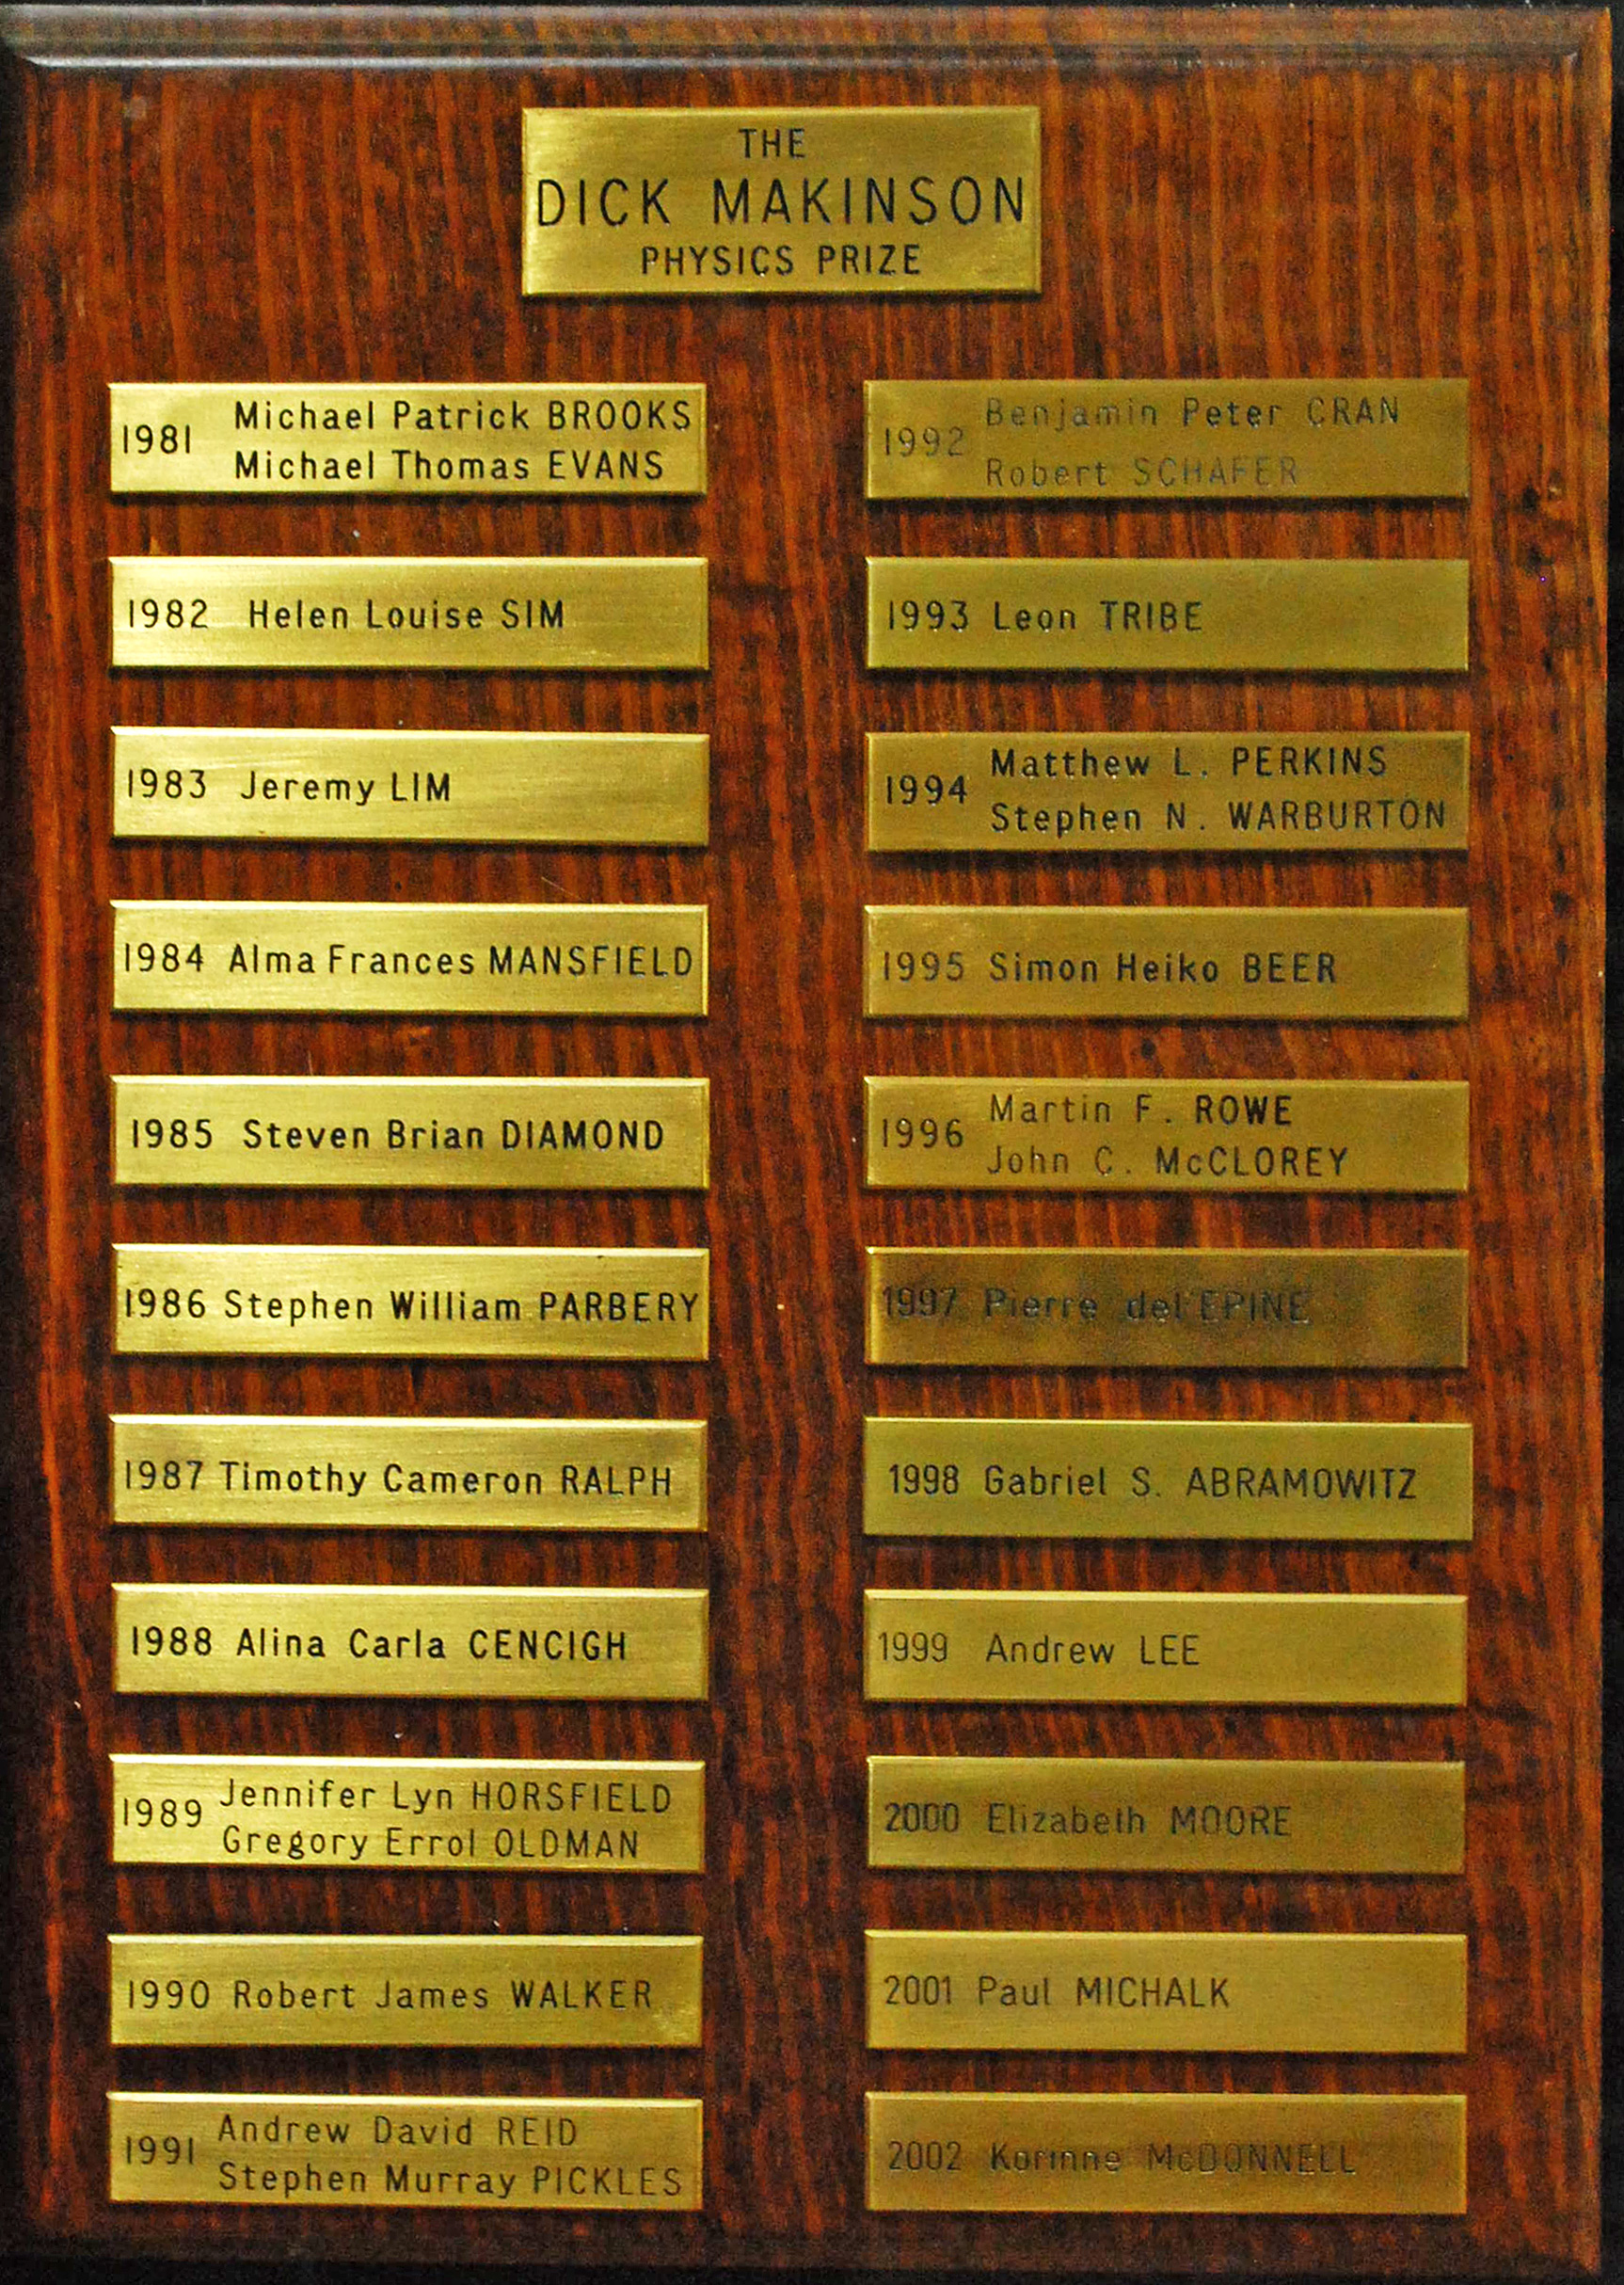 THE
DICK MAKINSON
PHYSICS PRIZE
1981 Michael Patrick BROOKS
Michael Thomas EVANS
1982 Helen Louise SIM
1983 Jeremy LIM
1984 Alma Frances MANSFIELD
1985 Steven Brian DIAMOND
1986 Stephen William PARBERY
1987 Timothy Cameron RALPH
1988 Alina Carla CENCIGH
1989 Jennifer Lyn HORSFIELD
Gregory Errol OLDMAN
1990 Robert James WALKER
1991 Andrew David REID
Stephen Murray PICKLES
1992 Benjamin Peter CRAN
Robert SCHAFER
1993 Leon TRIBE
1994 Matthew L. PERKINS
Stephen N. WARBURTON
1995 Simon Heiko BEER
1996 Martin F. ROWE
John C. McCLOREY
1997 Pierre del'EPINE
1998 Gabriel S. ABRAMOWITZ
1999 Andrew LEE
2000 Elizabeth MOORE
2001 Paul MICHALK
2002 Korinne McDONNELL